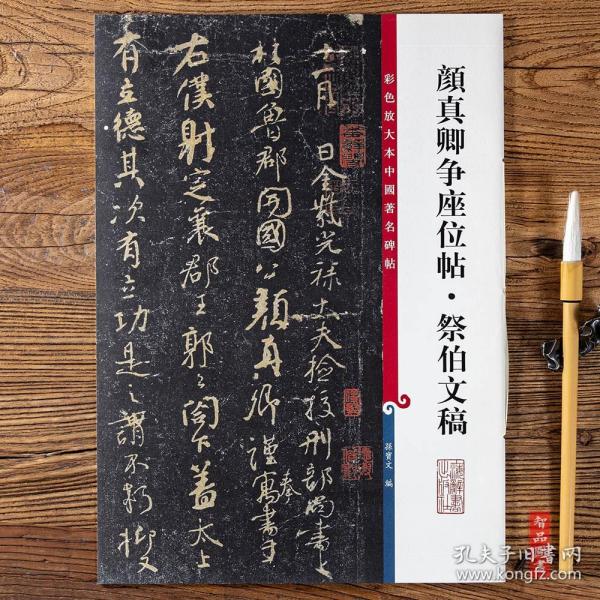 顏真卿争座位帖·祭伯文稿
彩色放大本中國著名碑帖
孫寶文 編
十一月 日金紫光祿大夫檢校刑部尚書上
柱國魯郡開國公顏真卿謹奉寓書于
右僕射定襄郡王郭公閤下蓋太上
有立德其次有立功是之謂不朽抑又
智品圖書
孔夫子旧书网
www.kongfz.com